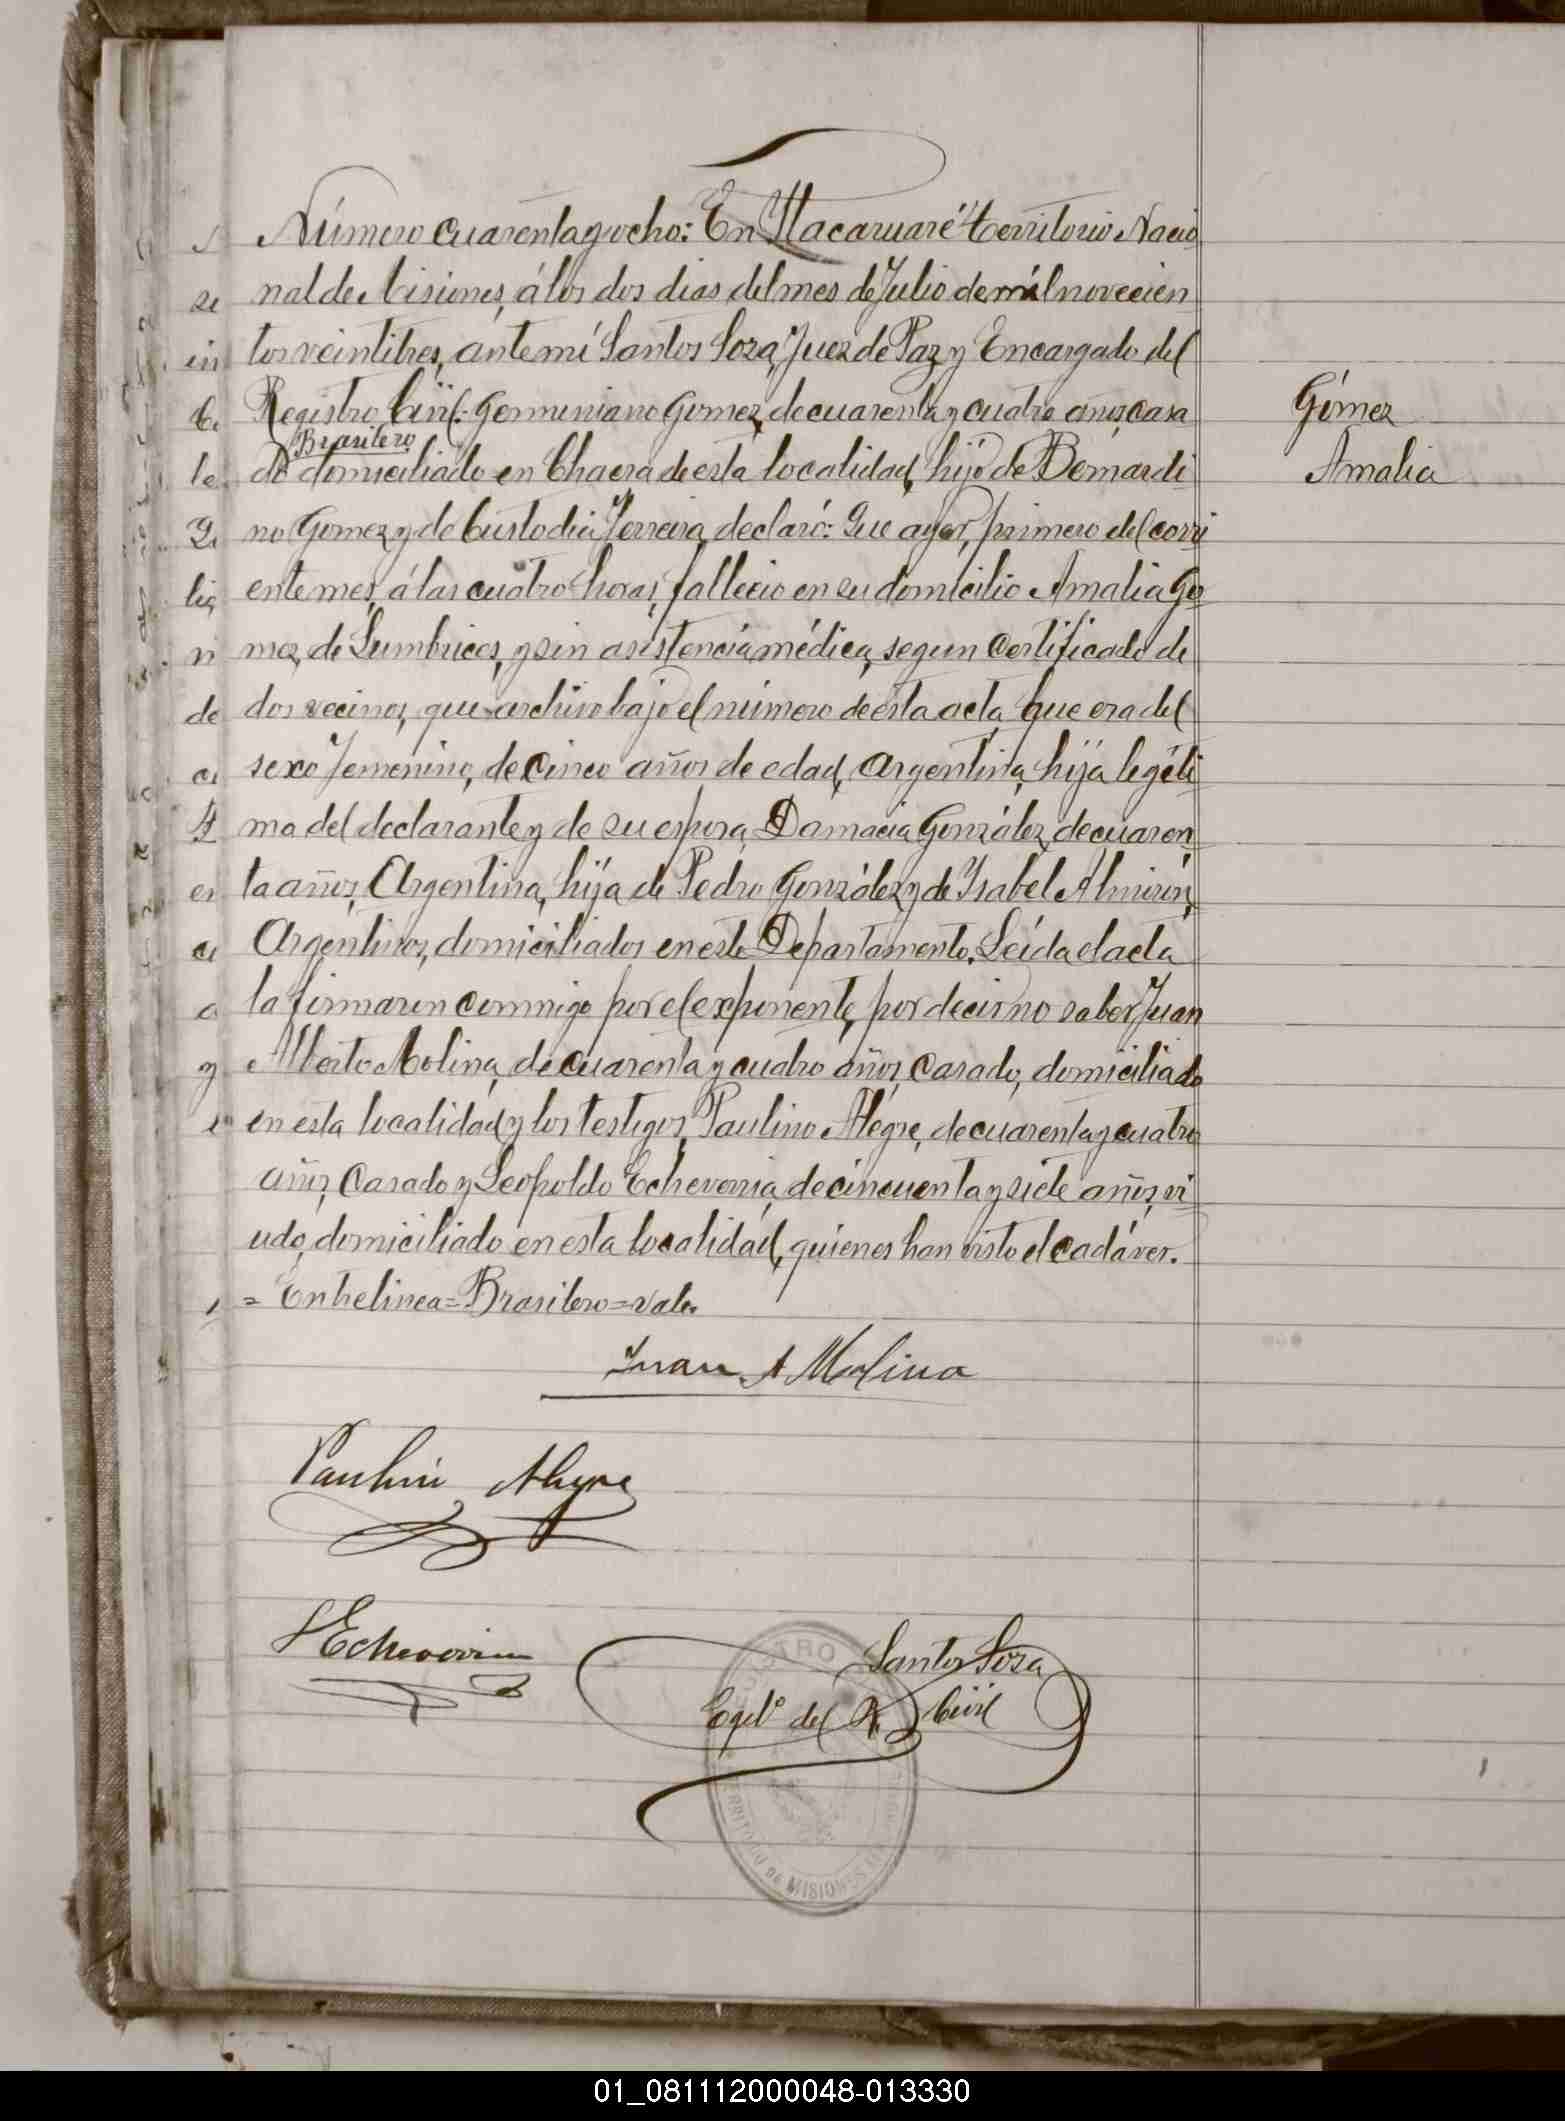 Número cuarenta y ocho: En Itacaruaré territorio Nacio
nal de Misiones, á los dos dias del mes de Julio de mil novecien
tos veintitres, ante mí Santos Soza, Juez de Paz y Encargado del
Registro Civil: Germiniano Gomez, de cuarenta y cuatro años, casa
Brasilero
do domiciliado en Chacra de esta localidad, hijo de Bernardi
no Gomez y de Custodia Ferreira, declaró: Que ayer, primero del corri
ente mes, á las cuatro horas, fallecio en su domicilio Amalia Go
mez, de Lumbrices, y sin asistencia médica, segun certificado de
dos vecinos, que archivo bajo el número de esta acta, que era del
sexo Femenino, de cinco años de edad, Argentina, hija legiti
ma del declarante y de su esposa, Damacia González, de cuaren
ta años, Argentina, hija de Pedro González y de Ysabel Almirón,
Argentinos, domiciliados en este Departamento. Leída el acta
la firmaron conmigo por el exponente, por decir no saber, Juan
Alberto Molina, de cuarenta y cuatro años, casado, domiciliado
en esta localidad y los testigos, Paulino Alegre, de cuarenta y cuatro
años, casado y Leopoldo Echeverria, de cincuenta y siete años, vi
udo, domiciliado en esta localidad, quienes han visto el cadáver.
= Entrelinea = Brasilero = vale.
Gómez
Amalia
Juan A Molina
Paulino Alegre
L Echeverria
Santos Soza
Egdo del R. Civil
TERRITORIO DE MISIONES
01_081112000048-013330